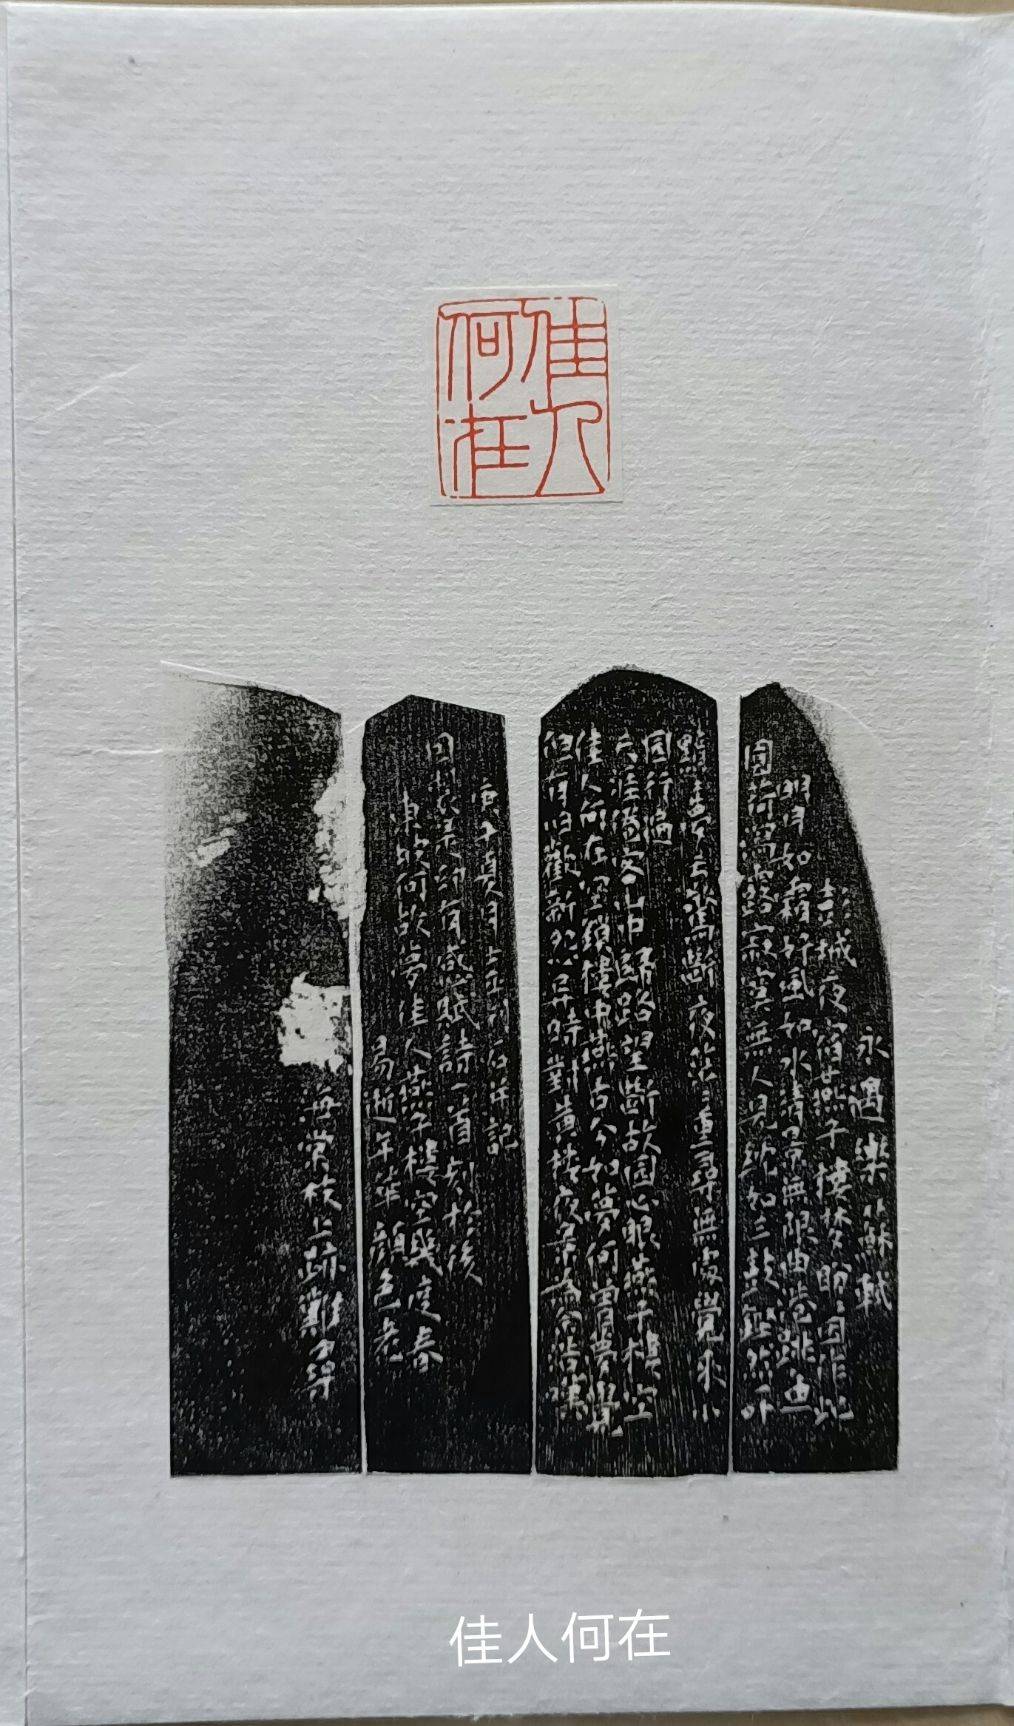 佳人
何在
永遇樂 蘇軾
彭城夜宿燕子樓夢盼〻因作此
明月如霜好風如水清景無限曲港跳魚
圓荷瀉露寂寞無人見紞如三鼓鏗然一叶
黯〻夢云驚斷夜茫〻重尋無處覺來小
園行遍
天涯倦客山中歸路望斷故園心眼燕子樓空
佳人何在空鎖樓中燕古今如夢何曾夢覺
但有旧歡新怨異時對黃樓夜景為余浩嘆
庚子 月 石并記
因 有感賦詩一首刻於後
何故夢佳人燕子樓空幾度春
易逝年華顏色老
枝上跡難尋
佳人何在